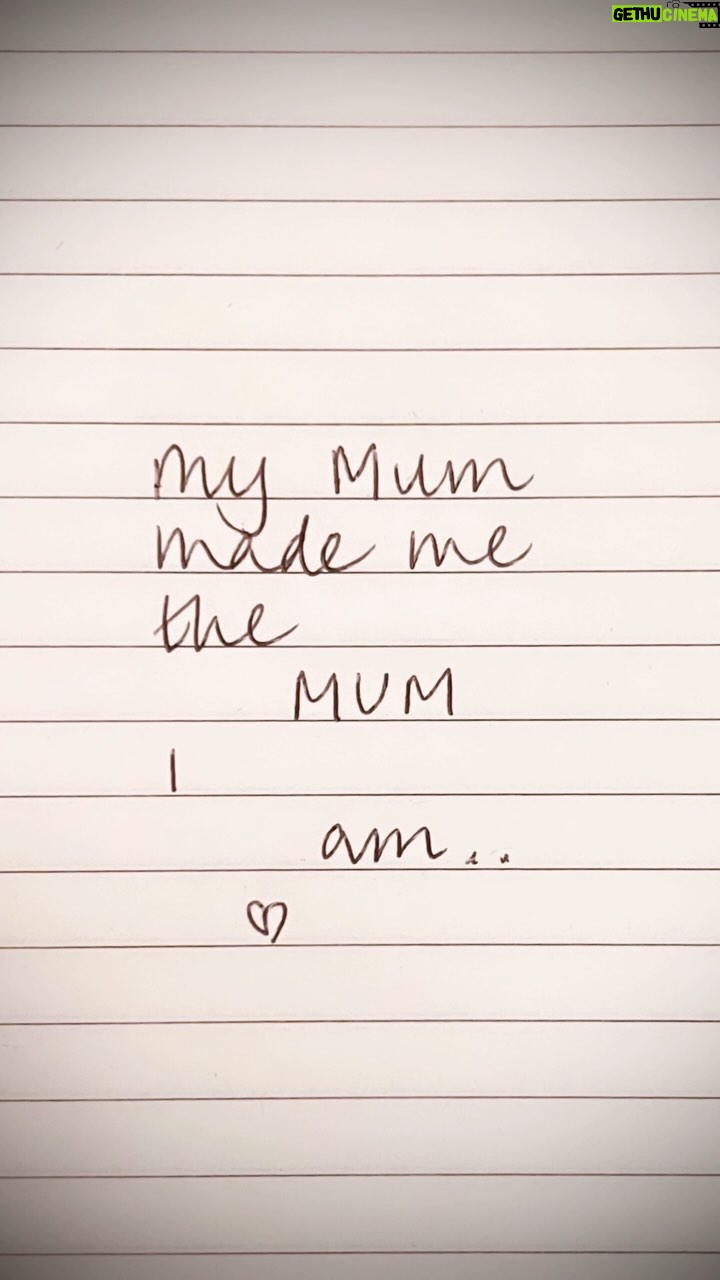 GETHU CINEMA
my Mum
made me
the
MUM
I
am..
♡